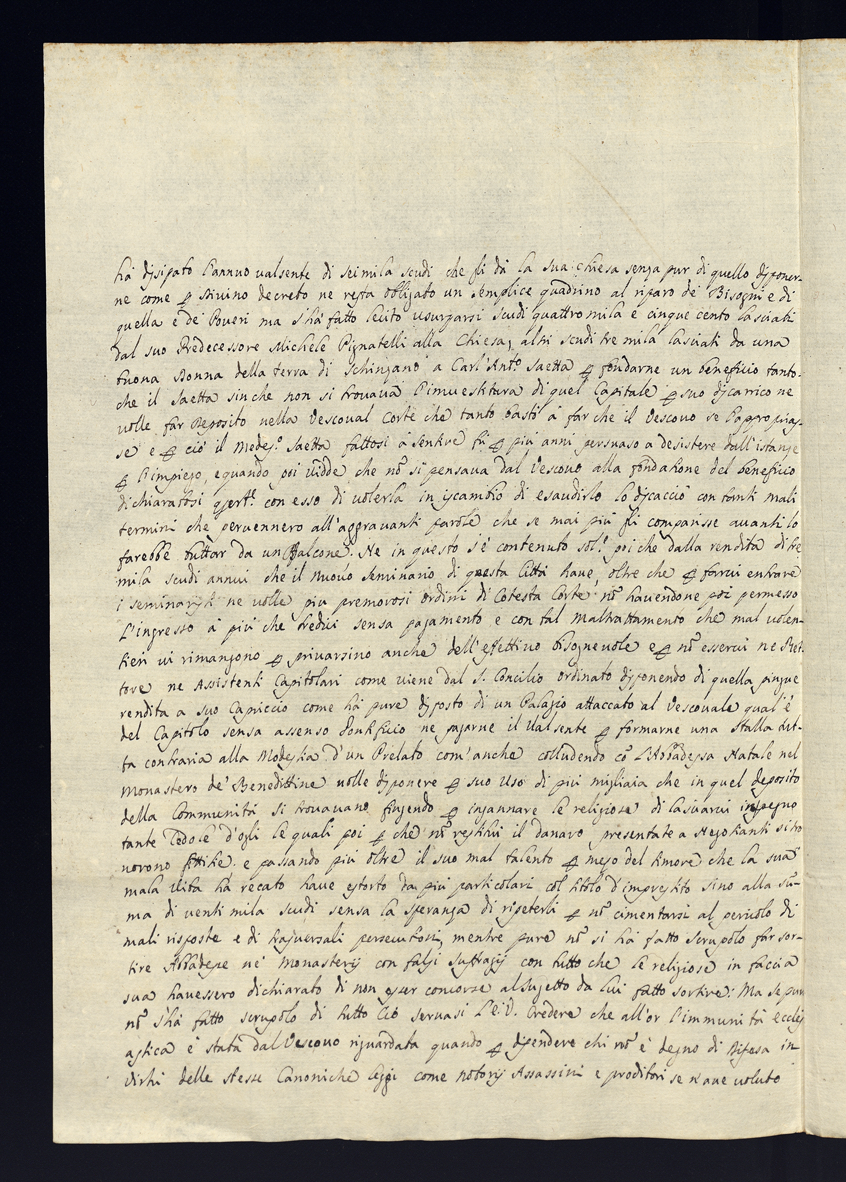 hà dissipato l'annuo valsente di seimila scudi che li dà la sua chiesa senza pur di quello disponer-
ne come ꝑ Divino decreto ne resta obligato un semplice quadrino al riparo de' Bisogni e di
quella e dei Poveri ma s'hà fatto lecito usurparsi scudi quattro mila e cinque cento lasciati
dal suo Predecessore Michele Pignatelli alla Chiesa; altri scudi tre mila lasciati da una
buona Donna della terra di Schinzano a Carl'Ant.º Saetta ꝑ fondarne un beneficio tanto
che il Saetta sinche non si trovava l'investitura di quel Capitale ꝑ suo discarrico ne
volle far Deposito nella Vescoval Corte che tanto bastò à far che il Vescovo se l'appropias-
se e ꝑ ciò il Medes.º Saetta fattosi à sentire fù ꝑ più anni persuaso a desistere dall'istanze
ꝑ l'impiego, e quando poi vidde che nõ si pensava dal Vescovo alla fondatione del beneficio
dichiaratosi con esso di volerla in iscambio di esaudirlo lo discacciò con tanti mali
termini che pervennero all'aggravanti parole che se mai più li comparisse avanti lo
farebbe buttar da un Balcone. Ne in questo s'è contenuto sol.º poi che dalla rendita di tre
mila scudi annui che il nuovo Seminario di questa Città have, oltre che ꝑ farvi entrare
i seminaristi ne volle più premorosi ordini di Cotesta Corte nõ havendone poi permesso
l'ingresso à più che tredici senza pagamento e con tal maltrattamento che mal volen-
tieri vi rimangono ꝑ privarsino anche dell'effettivo bisognevole e ꝑ nõ esservi ne Ret-
tore ne Assistenti Capitolari come viene dal S. Concilio ordinato disponendo di quella pingue
rendita a suo Capriccio come hà pure disposto di un Palazio attaccato al Vescovale qual'è
del Capitolo senza assenso Pontificio ne pagarne il valsente ꝑ formarne una stalla tut-
ta contraria alla Modestia d'un Prelato com'anche colludendo cõ l'Abbadessa Natale nel
Monastero de' Benedittine volle disponere ꝑ suo uso di più migliaia che in quel deposito
della Communità si trovavano fingendo ꝑ ingannare le religiose di lasciarvi in pegno
tante Cedole d'ogli le quali poi ꝑ che nõ restituì il danaro presentate a Negotianti si tro
vorono fittitie. e passando più oltre il suo mal talento ꝑ mezo del timore che la sua
mala vita hà recato have estorto da più particolari col titolo d'imprestito sino alla sũ-
ma di venti mila scudi senza la speranza di ripeterli ꝑ nõ cimentarsi al pericolo di
mali risposte e di trasversali persecutioni, mentre pure nõ si hà fatto scrupolo far sor-
tire Abbadesse ne' Monasterij con falsi suffragij con tutto che le religiose in faccia
sua havessero dichiarato di non esser concorse al sugetto da lui fatto sortire: Ma se pur
nõ s'hà fatto scrupolo di tutto ciò servasi l'E.V. credere che all'or l'immunità eccles
astica è stata dal Vescovo riguardata quando ꝑ difendere chi nõ è degno di difesa in
virtù delle stesse Canoniche leggi come notorij Assassini e proditori se n'ave voluto